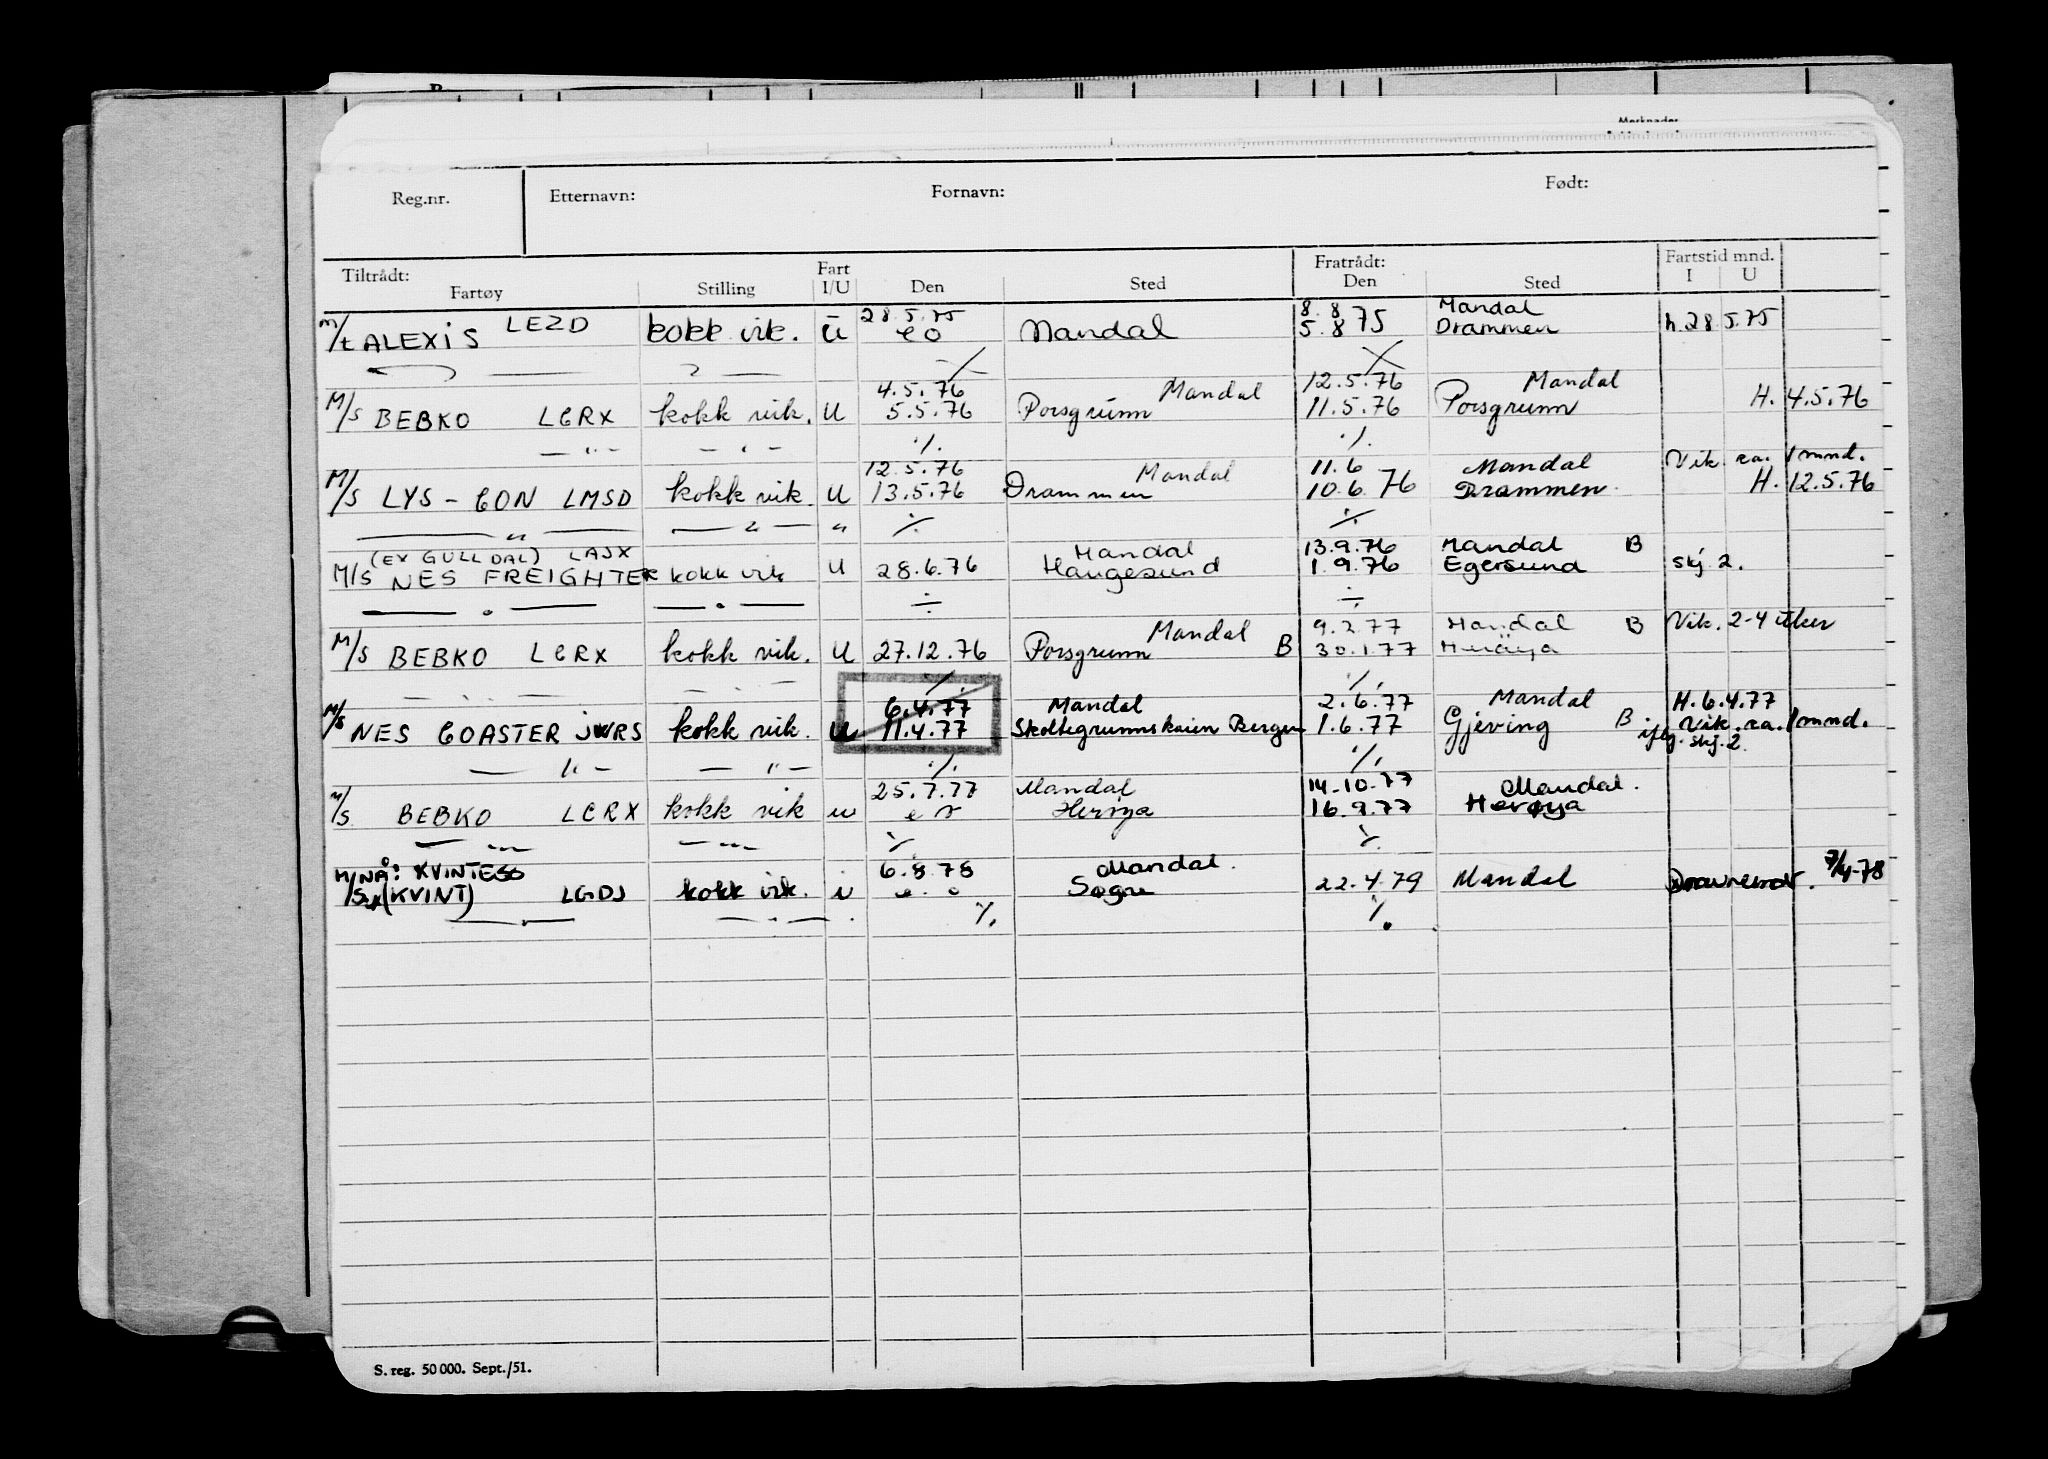 Merknader
Reg.nr. Etternavn: Fornavn: Født:
Tiltrådt: Fart Fratrådt: Fartstid mnd.
Fartøy Stilling I/U Den Sted Den Sted I U
28.5.75 8.8 Mandal
M/t ALEXIS LEZD kokk vik. U eo Mandal 5.8 75 Drammen h.28.5.75
4.5.76 Mandal 12.5.76 Mandal
M/S BEBKO LCRX kokk vik. U 5.5.76 Porsgrunn 11.5.76 Porsgrunn H. 4.5.76
— " — — " — % %
12.5.76 Mandal 11.6 Mandal Vik. ca. 1 mnd.
M/S LYS - CON LMSD kokk vik. U 13.5.76 Drammen 10.6 76 Drammen H. 12.5.76
— " — — " — " % %
(EX GULLDAL) LAJX Mandal 13.9.76 Mandal B
M/S NES FREIGHTER kokk vik U 28.6.76 Haugesund 1.9.76 Egersund skj. 2.
— " — — " — ÷ ÷
Mandal 9.2.77 Mandal B Vik. 2-4 uker
M/S BEBKO LCRX kokk vik. U 27.12.76 Porsgrunn B 30.1.77 Herøya
— " — — " — % %
6.4.77 Mandal 2.6.77 Mandal H. 6.4.77
M/S NES COASTER JWRS kokk vik. U 11.4.77 Skoltegrunnskaien Bergen 1.6.77 Gjeving B Vik. ca. 1 mnd.
iflg. skj. 2.
— " — — " — % %
25.7.77 Mandal 14.10.77 Mandal.
M/S BEBKO LCRX kokk vik u eo Herøya 16.9.77 Herøya
— " — — " — % %
NÅ: KVINTESS 6.8.78 Mandal. 7/4-78
M/S X (KVINT) LGDJ kokk vik. u e. o Søgne 22.4.79 Mandal
— " — — " — % %
S. reg. 50 000. Sept./51.